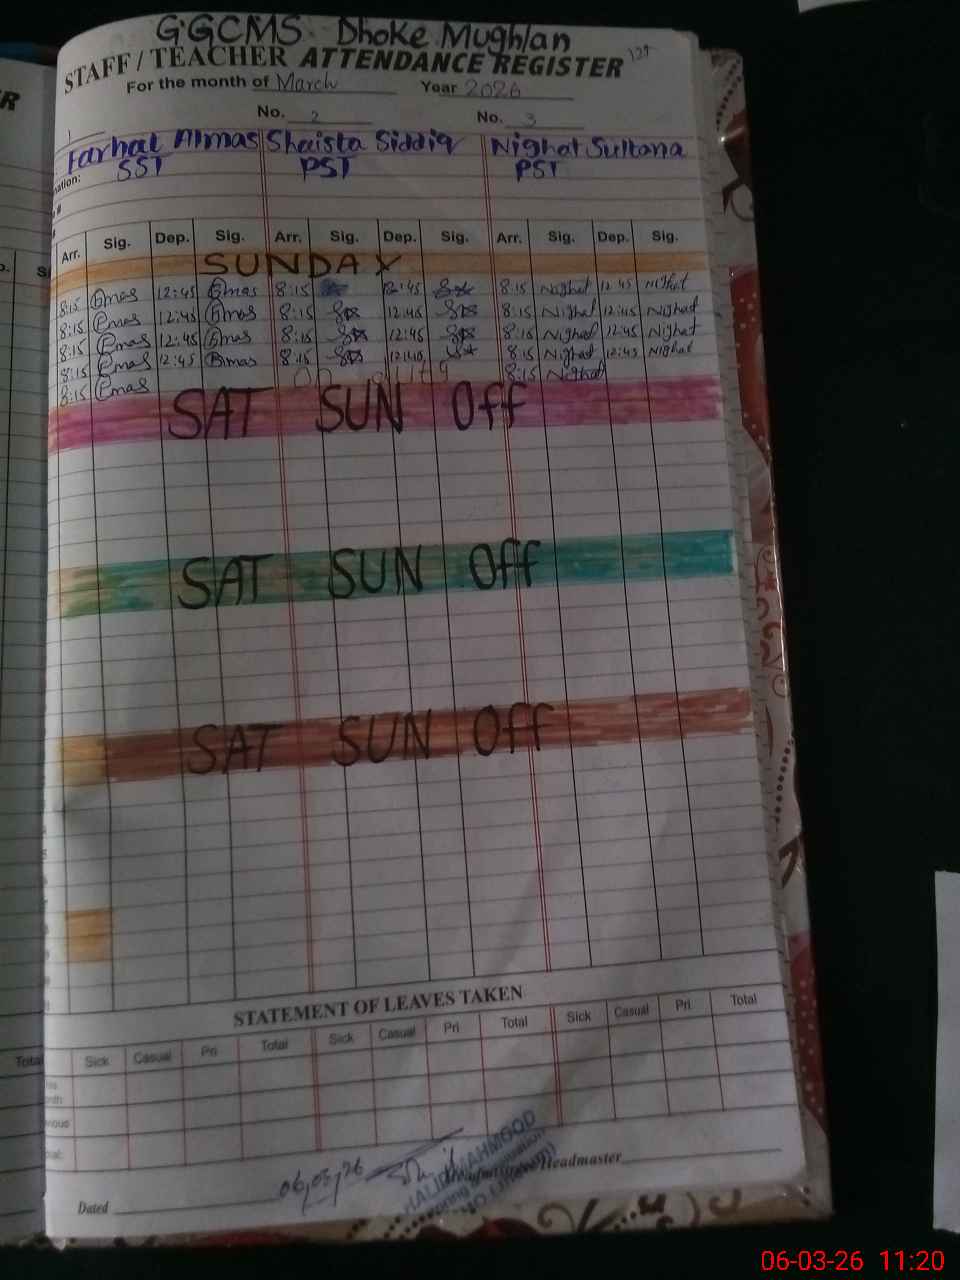 GGCMS Dhoke Mughlan
STAFF / TEACHER ATTENDANCE REGISTER 129
For the month of March Year 2026
No. 2 No. 3
Farhat Almas Shaista Siddiq Nighat Sultana
SST PST PST
Arr. Sig. Dep. Sig. Arr. Sig. Dep. Sig. Arr. Sig. Dep. Sig.
SUNDAY
8:15 12:45 8:15 12:45 8:15 Nighat 12:45 Nighat
8:15 12:45 8:15 12:45 8:15 Nighat 12:45 Nighat
8:15 12:45 8:15 12:45 8:15 Nighat 12:45 Nighat
8:15 12:45 8:15 8:15 Nighat 12:45 Nighat
8:15 On duty 8:15 Nighat
SAT SUN Off
SAT SUN Off
SAT SUN Off
STATEMENT OF LEAVES TAKEN
Total Sick Casual Pri Total Sick Casual Pri Total Sick Casual Pri Total
06,03,26
MAHMOOD
Dated Headmaster
06-03-26 11:20